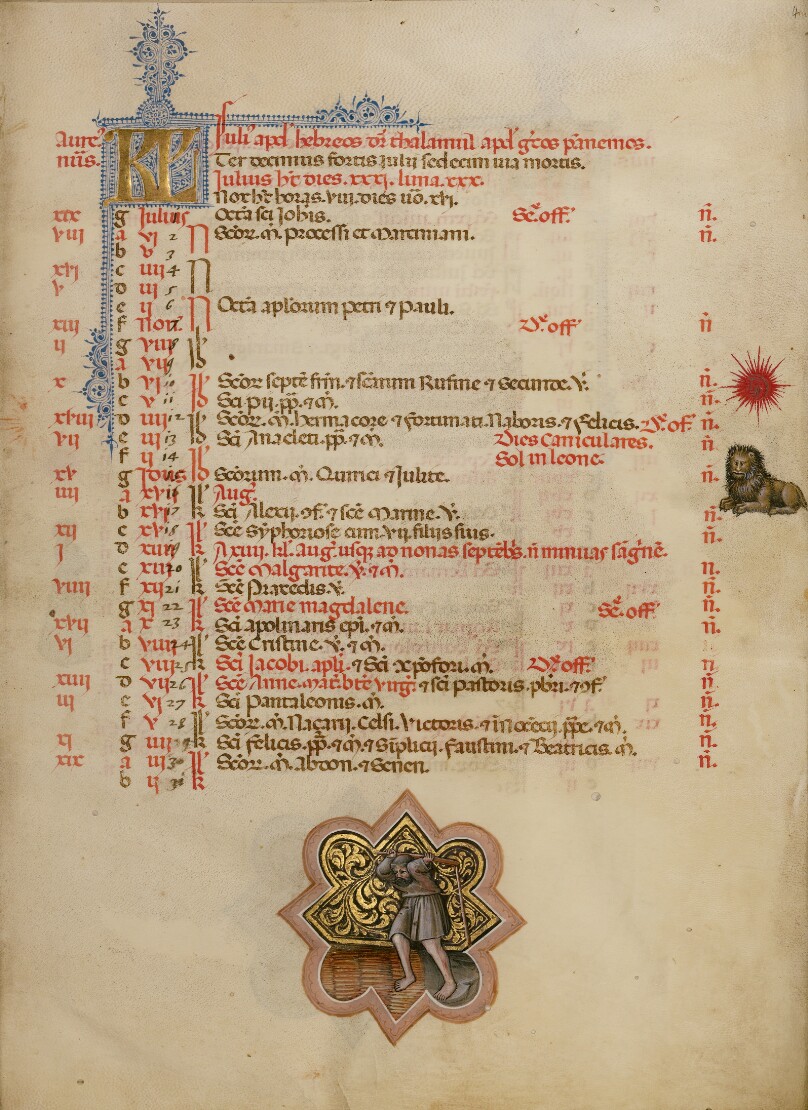 Aure KL Iuli' apd' hebreos dr' thalamul apd' grecos panemos.
nus. Ter decimus fortis iulii sedecim uia mortis.
Iulius ht' dies. xxxi. luna. xxx.
Nox ht' horas. viii. dies uo. xvi.
xix g Iulius Octa sci Iohis. Se. off. n.
viii a vi 2 N Scor. m. Processi et Martiniani. n.
b v 3
xvi c iiii 4 N
v d iii 5
e ii 6 N Octa aplorum petri 7 pauli.
xiii f Non. D. off. n
ii g viii Id
a vii
x b vi 10 Id Scor septe frm. 7 scarum Rufine 7 Secunde. V. n.
c v 11 Sci pii. pp. 7 m. n.
xviii d iiii 12 Id Scor. m. hermacore 7 fortunati. Naboris. 7 felicis. D. of. n.
vii e iii 13 Sci Anacleti. pp. 7 m. Dies Caniculares. n
f ii 14 Id Sol in leone.
xv g Idus Scorum. m. Quirici 7 Iulite. n.
iiii a xvii kl Aug.
b xvi 17 Sci Alexii. 9f. 7 sce Marine. V. n.
xii c xv 18 kl Sce Syphorose cum. vii. filiis suis. n.
i d xiiii 19 A xiiii. kl. aug. usq; ad nonas septebs. n minuas sagne.
e xiii 20 kl Sce Malgarite. V. 7 m. n.
viiii f xii 21 Sce Praxedis. V. n.
g xi 22 kl Sce Marie magdalene. Se. off. n.
xvii a x 23 Sci apolinaris epi. 7 m. n.
vi b viiii 24 kl Sce Cristine. V. 7 m.
c viii 25 Sci Iacobi. apli. 7 Sci xpofori. m. D. off. n
xiiii d vii 26 kl Sce Anne. matr. bte virg. 7 sci Pastoris. pbri. 7 9f. n.
iii e vi 27 Sci Pantaleonis. m. n.
f v 28 kl Scor. m. Naçarii. Celsi. Victoris. 7 Inocecii. ppe. 7 m. n.
xi g iiii 29 Sci felicis. pp. 7 m. 7 Siplicii. faustini. 7 Beatricis. m. n.
xix a iii 30 kl Scor. m. Abdon. 7 Senen. n.
b ii 31